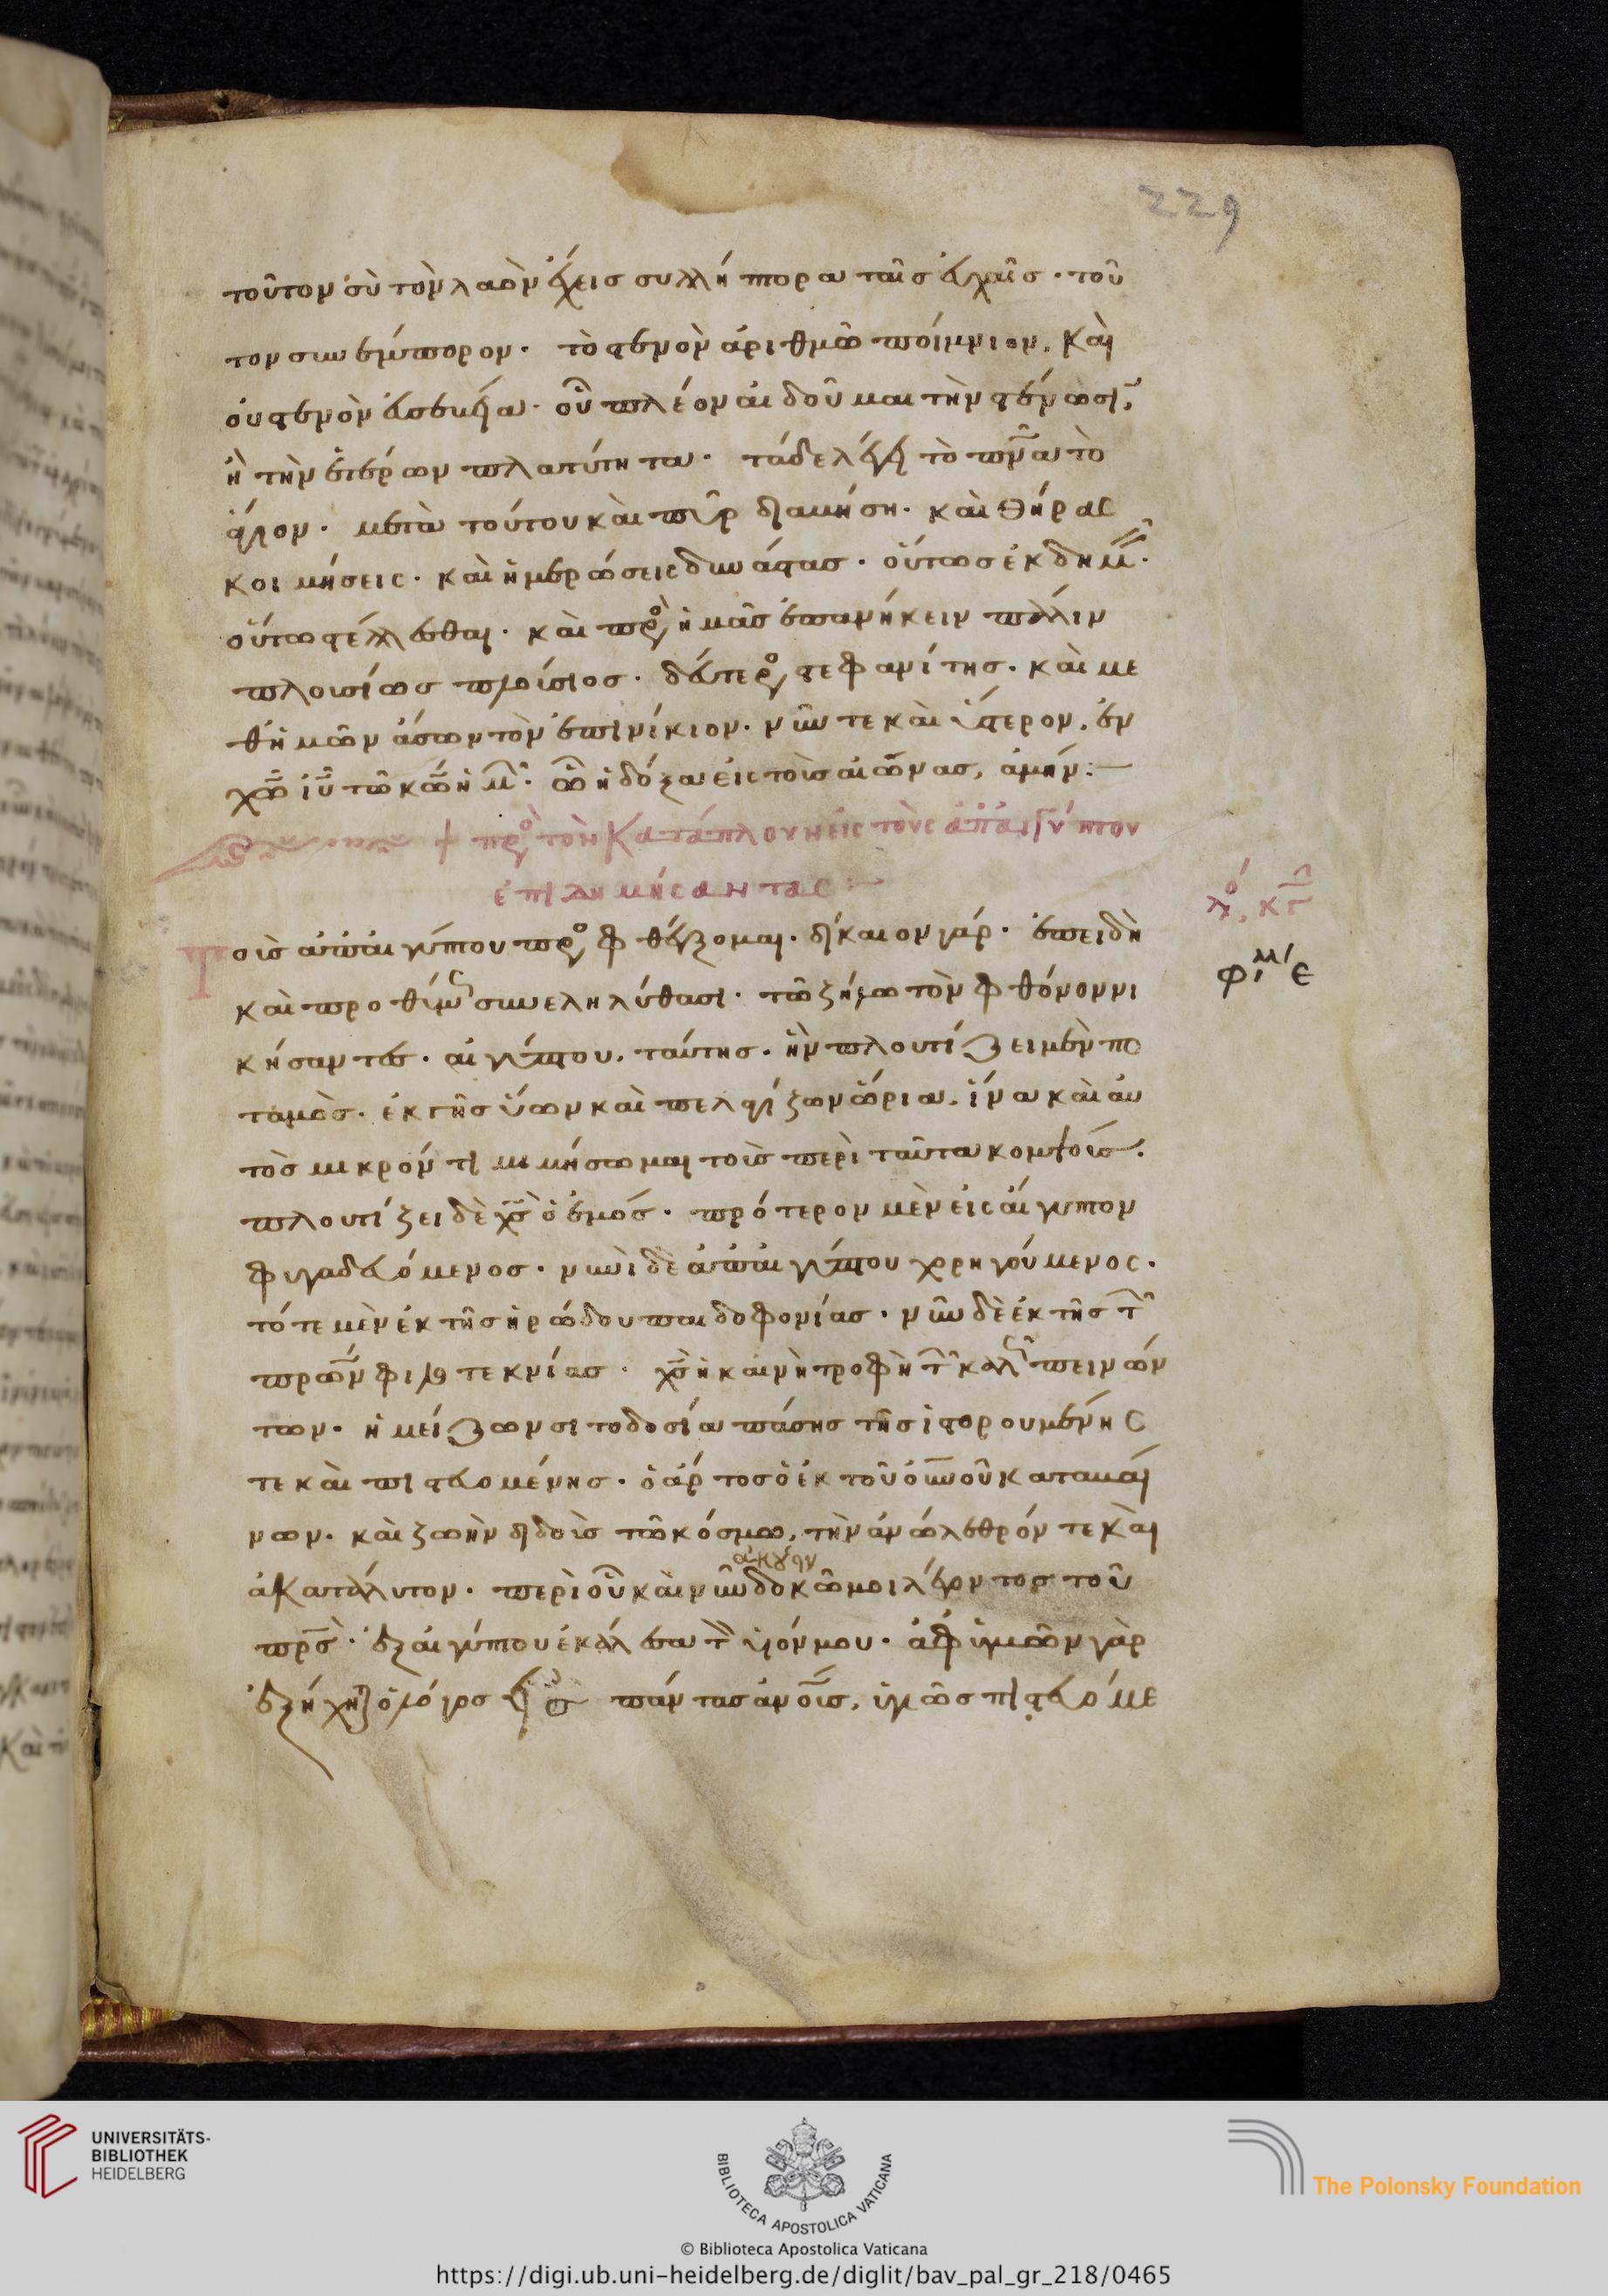 229
τοῦτον σὺ τὸν λαὸν ἔχεις συλλήπτορα ταῖς εὐχαῖς · τοῦ
τον συνέμπορον · τὸ στενὸν ἀριθμῶ ποίμνιον, καὶ
οὐ στενὸν εὐσεβεία · οὗ πλέον αἰδοῦμαι τὴν στένωσιν,
ἢ τὴν ἑτέρων πλατύτητα · τάδε λέγει τὸ πνᾶ τὸ
ἅγιον · μετὰ τούτου καὶ πῦρ διαμήση · καὶ θῆρας
κοιμήσεις · καὶ ἡμερώσεις δυνάστας · οὕτως ἐκδημ ·
οὕτω στέλλεσθαι · καὶ πρὸ ἡμᾶς ἐπανήκειν πάλιν
πλουσίως πλούσιος · δεύτερο στεφανίτης · καὶ με
θἡμῶν ἄσων τὸν ἐπινίκιον · νῦν τε καὶ ὕστερον, ἐν
χῶ ἰῦ τῶ κῶ ἡμ · ὧ ἡ δόξα εἰς τοὺς αἰῶνας, ἀμήν :—
πρὸ τὸν κατάπλουν εἰς τοὺς ἀπαιγύπτου
ἐπιδημήσαντας :—
λό, κγ
Τοῖς ἀπαιγύπτου προ φθέγξομαι · δίκαιον γάρ · ἐπειδὴ
φιμ´ ε
καὶ προθύμ συνεληλύθασι · τῶ ζήλω τὸν φθόνον νι
κήσαντες · αἰγύπτου, ταύτης · ἣν πλουτίζει μὲν πο
ταμὸς · ἐκ γῆς ὕων καὶ πελαγίζων ὥρια, ἵνα καὶ αὐ
τὸς μικρόν τι μιμήσωμαι τοῖς περὶ ταῦτα κομψοῖς ·
πλουτίζει δὲ χς̅ ὁ ἐμός · πρότερον μὲν εἰς αἴγυπτον
φυγαδευόμενος · νυνὶ δὲ ἀπαιγύπτου χορηγούμενος ·
τότε μὲν ἐκ τῆς ἡρώδου παιδοφονίας · νῦν δὲ ἐκ τῆς τ
πρων φιλοτεκνίας · χς̅ ἡ καινὴ τροφὴ τ καλ πεινών
των · ἡ μείζων σιτοδοσία πάσης τῆς ἱστορουμένης
τε καὶ πιστευομένης · ὁ ἄρτος ὁ ἐκ τοῦ οὐνοῦ καταβαί
νων · καὶ ζωὴν διδοὺς τῶ κόσμω, τὴν ἀνώλεθρόν τε καὶ
ἀκούειν
ἀκατάλυτον · περὶ οὗ καὶ νῦν δοκῶ μοι λέγοντος τοῦ
πρς̅ · ἐξ αἰγύπτου ἐκάλεσα τ υἱόν μου · ἀφ ὑμῶν γὰρ
ἐξήχηται ὁ λόγος εἰς πάντας ἀνους, ὑμῶς πιστευόμε
UNIVERSITÄTS-
BIBLIOTHEK
HEIDELBERG
BIBLIOTECA APOSTOLICA VATICANA
The Polonsky Foundation
© Biblioteca Apostolica Vaticana
https://digi.ub.uni-heidelberg.de/diglit/bav_pal_gr_218/0465